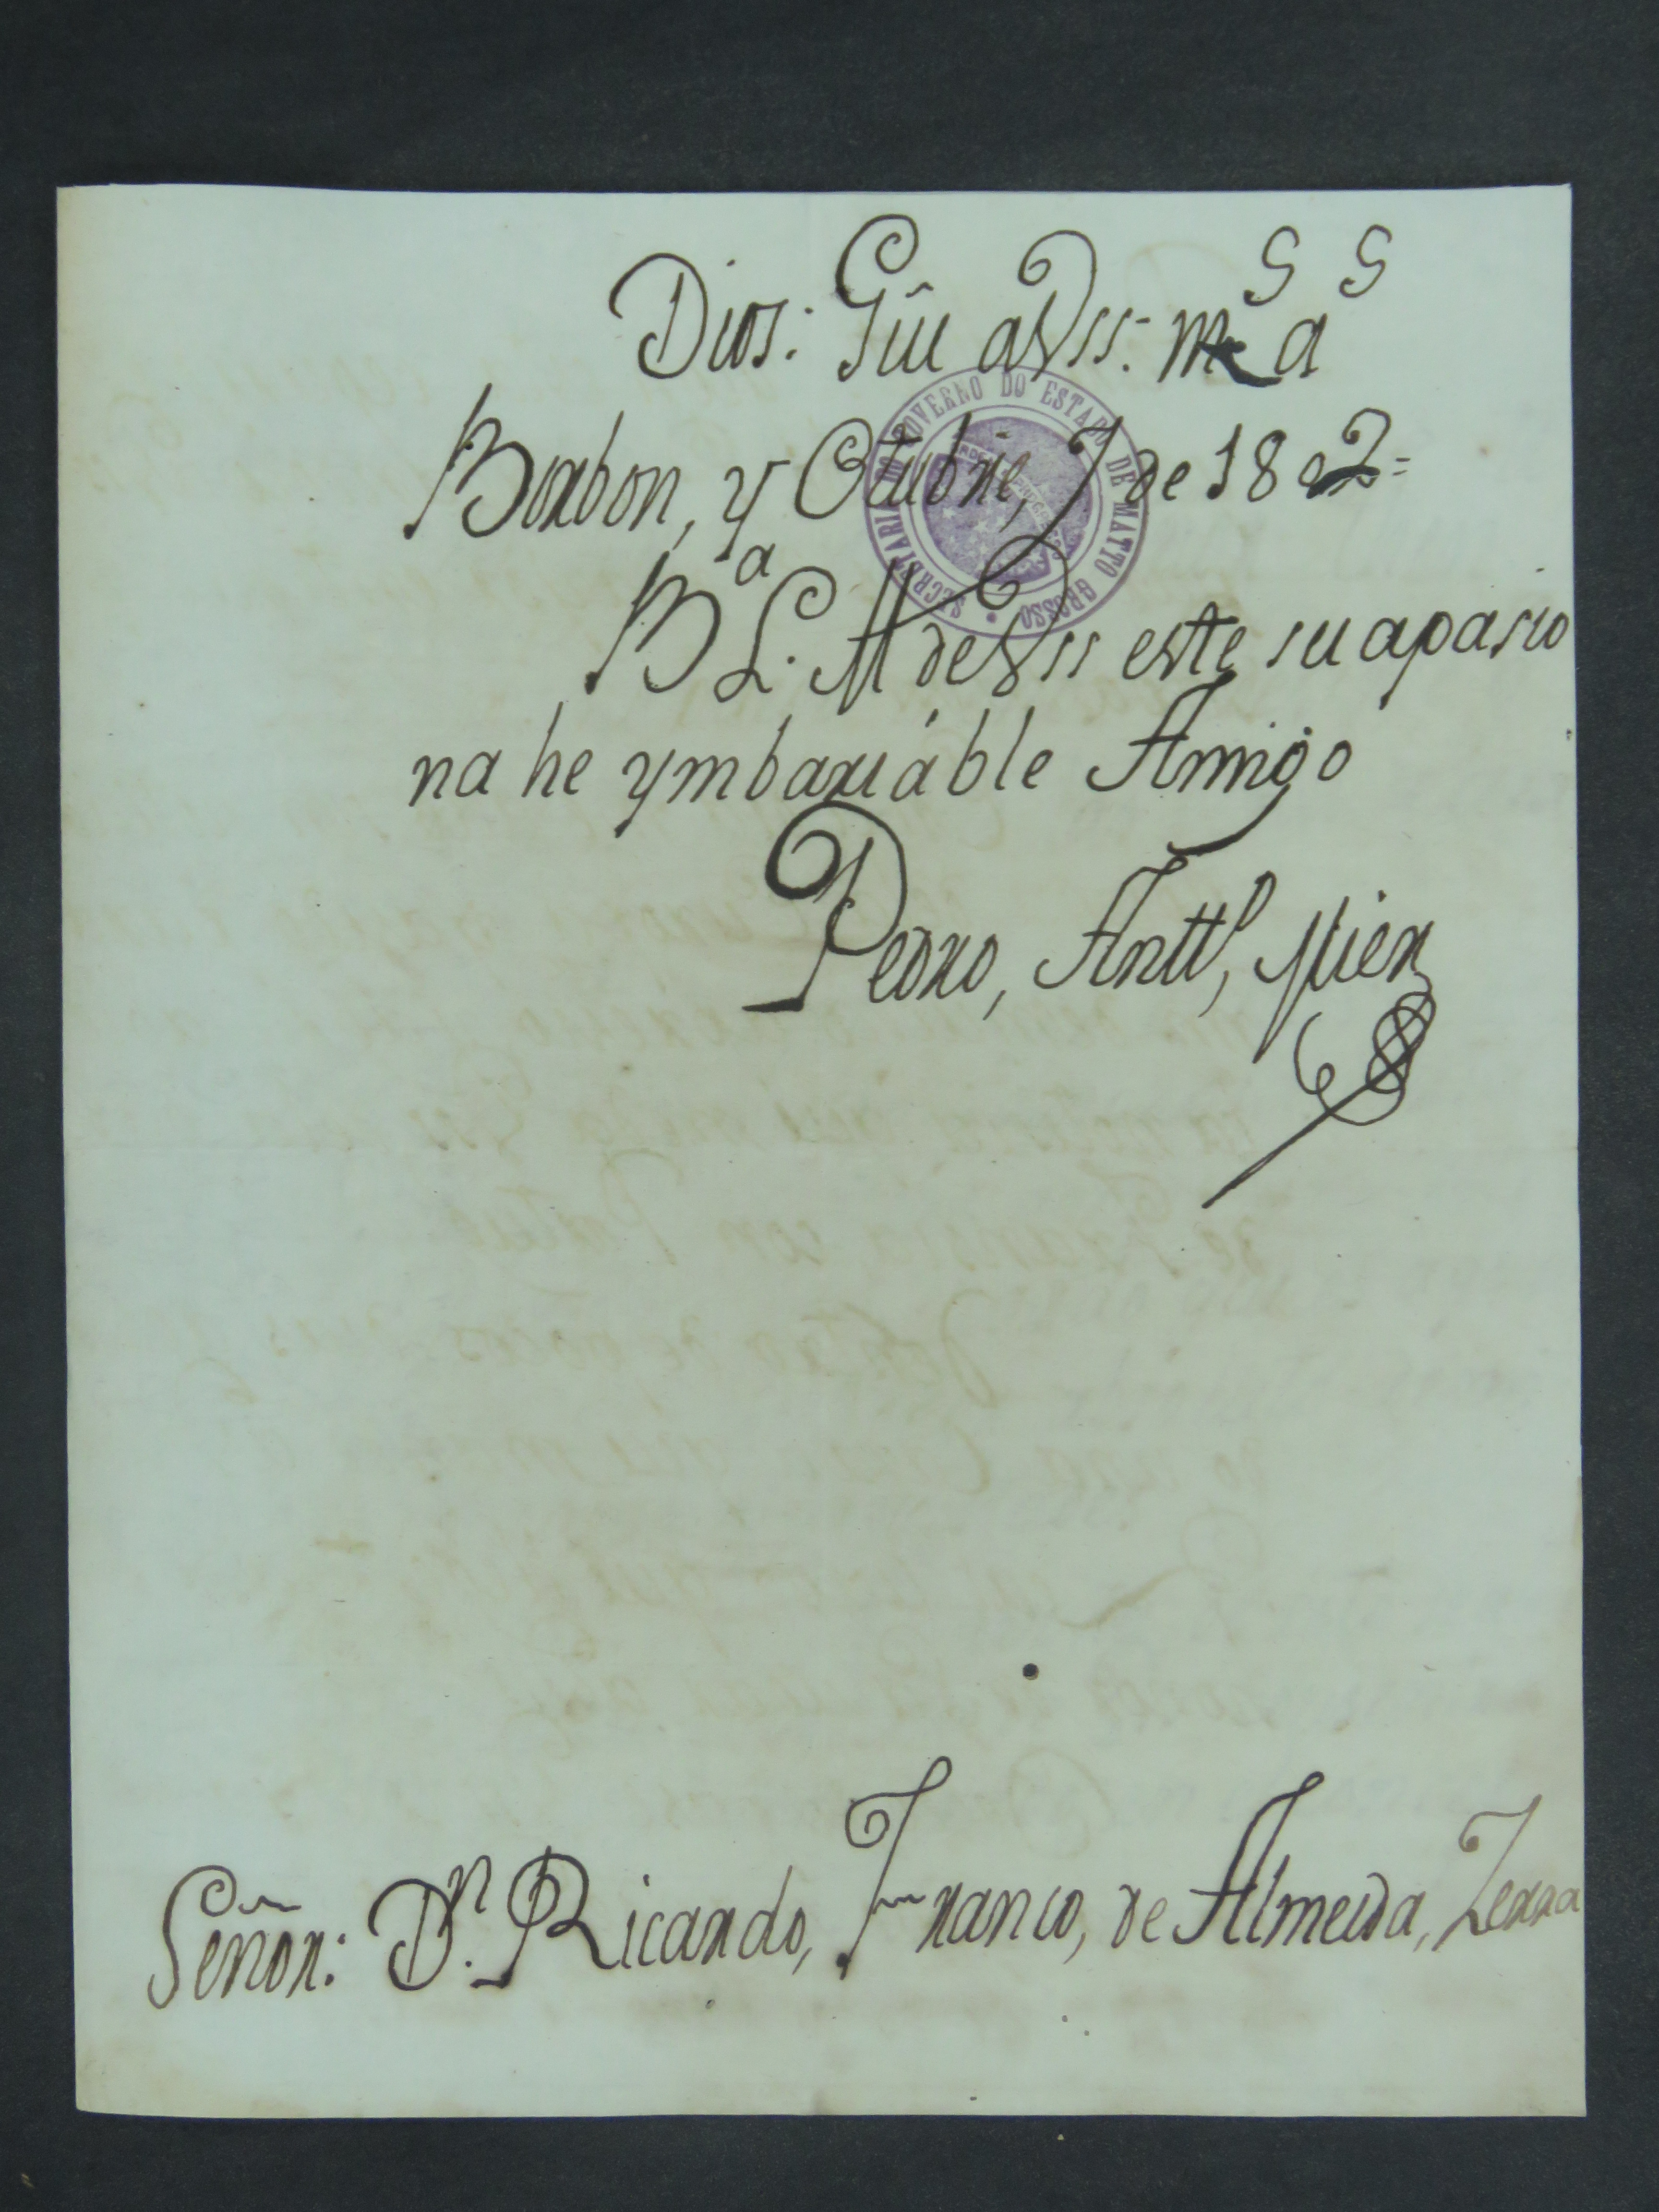 Dios: Gûe a Vss: ms as
Borbon, y Octubre, 7 de 1802=
Ba L. M de Vss este su apasio
na he ymbariáble Amigo
Pedro, Antto, Mier
Señor: Dn. Ricardo, Franco, de Almeida, Zerra
SECRETARIA DO GOVERNO DO ESTADO DE MATTO GROSSO